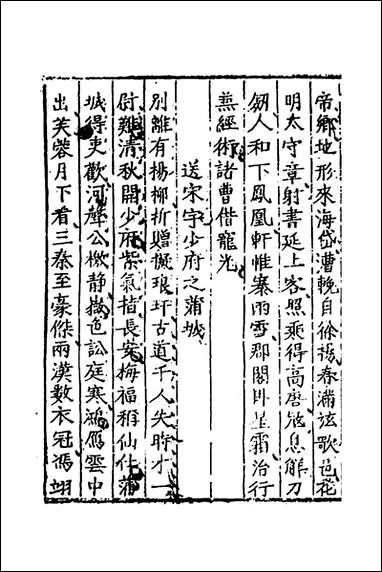 帝鄉地形來海岱漕輓自徐揚春滿弦歌邑花
明太守章射書延上客照乘得高唐冠息解刀
劒人和下鳳凰軒惟褰雨雪郡閣卧星霜治行
兼經術諸曹借寵光
送宋宇少府之蒲城
別離有楊柳折贈擬琅玕古道千人失時才一
尉難清秋開少府紫氣指長安梅福稱仙仕蒲
城得吏歡河聲公檄靜嶽色訟庭寒鴻鴈雲中
出芙蓉月下看三秦至豪傑兩漢數衣冠馮翊